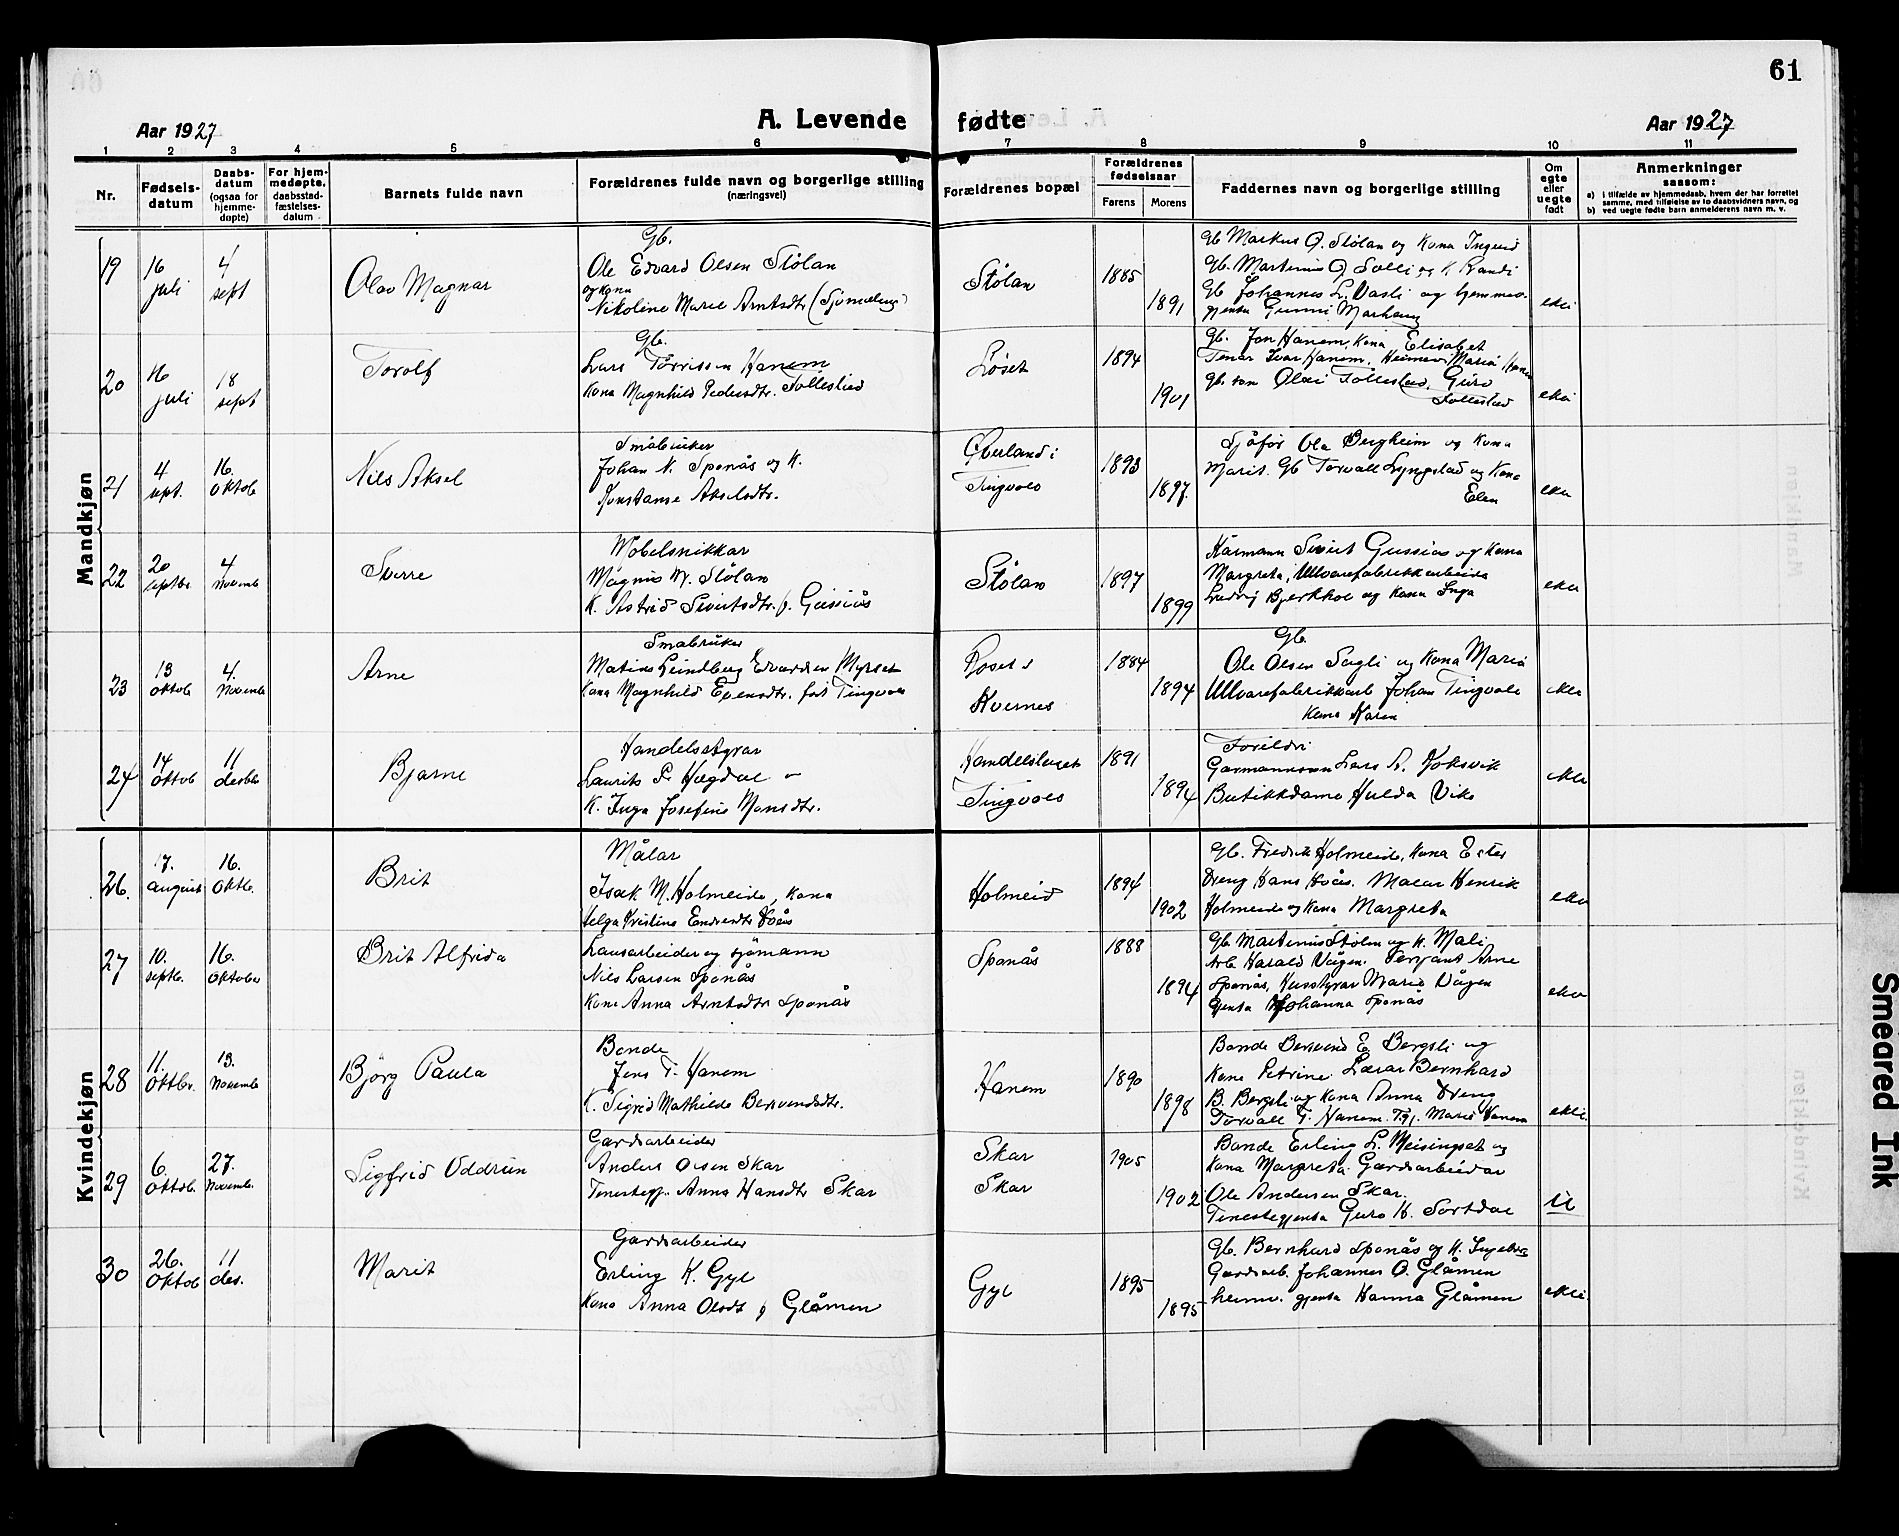 61
Aar 1927
A. Levende fødte
Aar 1927
1 2 3 4 5 6 7 8 9 10 11
Nr.
Fødsels-
datum
Daabs-
datum
(ogsaa for
hjemme-
døpte)
For hjem-
medøpte,
daabsstad-
fæstelses-
datum
Barnets fulde navn
Forældrenes fulde navn og borgerlige stilling
(næringsvei)
Forældrenes bopæl
Forældrenes
fødselsaar
Farens Morens
Faddernes navn og borgerlige stilling
Om
egte
eller
uegte
født
Anmerkninger
saasom:
a) i tilfælde av hjemmedaab, hvem der har forrettet
samme, med tilføielse av to daabsvidners navn, og
b) ved uegte fødte barn anmelderens navn m. v.
Mandkjøn
19
16
juli
4
sept
Olav Magnar
Gb.
Ole Edvard Olsen Stølan
og kona
Nikoline Marie Arntsdtr
Stølan
1885
1891
Gb Markus O. Stølan og Kona Ingerid
Gb. Martinus O. Solli og K Randi
Gb Johannes L. Vasli og hjemmev.
gjenta Gunni
20
16
juli
18
sept
Torolf
Gb.
Lars Tørrissen Hanem
Kona Magnhild Pedersdtr. Tollestad
Løset
1894
1901
Gb. Jon Hanem, Kona Elisabet
Tenar Ivar Hanem, Maria Hanem
Gb. son Olav Follestad, Guro
Follestad
21
4
sept.
16.
Oktob
Nils Aksel
Småbruker
Johan N. Sponås og K.
Konstanse Akselsdtr.
Øverland i
Tingvoll
1893
1897
Sjåfør Ola Bergheim og Kona
Marit. Gb Torvall Lyngstad og Kona
Elen
22
20
septbr.
4
Novemb
Sverre
Møbelsnikkar
Magnus M. Stølan
K. Astrid Sivertsdtr. f. Gussiås
Stølan
1897
1899
Kårmann Sivert Gussiås og Kona
Margreta, Ullvarefabrikkarbeida
Ludvig Bjerkhol og Kona Inga
23
13
Oktob
4.
Novemb
Arne
Småbruker
Matias Leindberg Edvardsen Myrset
Kona Magnhild Evensdtr. født Tingvoll
Roset i
Kvernes
1884
1894
Gb
Ole Olsen Sagli og Kona Maria
Ullvarefabrikkarb Johan Tingvoll
Kona Karen
24
14
Oktob
11
desbr
Bjarne
Handelsstyrar
Laurits P. Hægdal
K. Inga Josefine Monsdtr.
Handelslaget
Tingvoll
1891
1894
Foreldri
Garmannson Lars A. Joksvik
Butikkdame Hulda Vike
Kvindekjøn
26.
17.
august
16.
Oktb.
Brit
Målar
Isak M. Holmeide, Kona
Helga Kristine Endresdtr Voås
Holmeid
1894
1902
Gb. Fredrik Holmeide, Kona Ester
Dreng Hans Hoås. Malar Henrik
Holmeide og Kona Margreta
27
10.
septb.
16.
Oktober
Brit Alfrida
Lausarbeider og sjømann
Nils Larsen Sponås
Kona Anna Arntsdtr Sponås
Sponås
1888
1894
Gb Martinius Stølan og K. Mali
Arb. Harald Vågen. Serjant Arne
Sponås, Husstyrar Marie Vågen
Gjenta Johanna Sponås
28
11.
Oktbr.
13.
Novemb
Bjørg Paula
Bonde
Jens T. Hanem
K. Sigrid Mathilde Bersvendsdtr.
Hanem
1890
1898
Bonde Bersvend E. Bergsli og
Kona Petrine. Lærar Bernhard
B. Bergsli og Kona Anna Dreng
Torvall T. Hanem. Tgj. Marie Hanem
29
6.
Oktob.
27.
Novemb.
Sigfrid Oddrun
Gardsarbeider
Anders Olsen Skar
Tenestegj. Anna Hansdtr Skar
Skar
Skar
1905
1902
Bonde Erling L. Meisingset og
Kona Margreta. Gardsarbeidar
Ole Andersen Skar.
Tenestegjenta Guro H. Sortdal
u
30
26.
Oktob
11
des.
Marit
Gardsarbeider
Erling K. Gyl
Kona Anna Olsdt f Glåmen
Gyl
1895
1895
Gb. Bernhard Sponås og K. Ingeborg
Gardsarb. Johannes O. Glåmen
heim. gjenta Hanna Glåmen
Smeared Ink